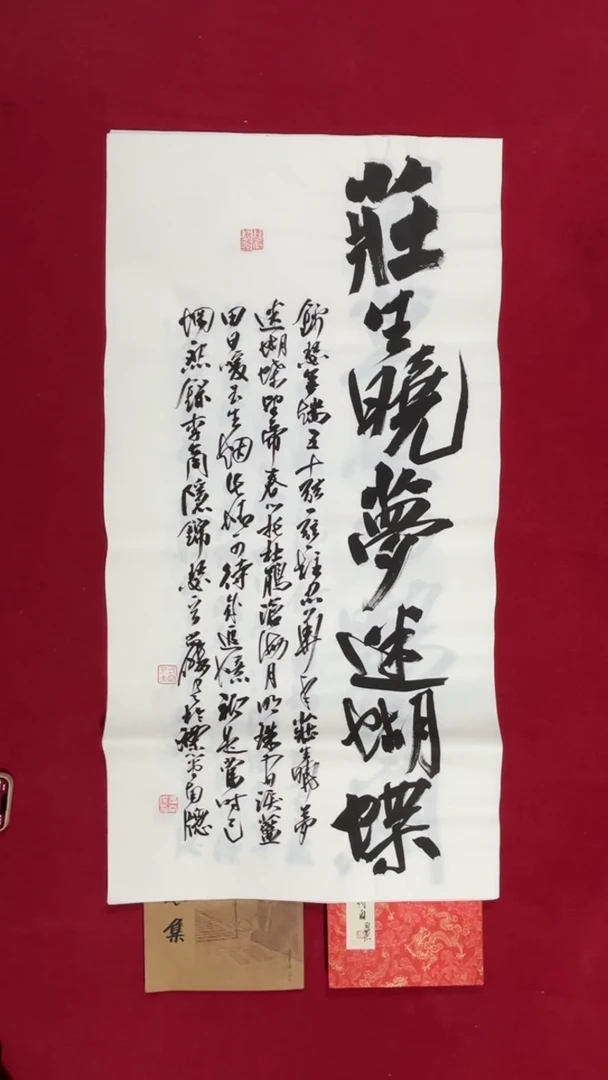 莊生曉夢迷蝴蝶
錦瑟無端五十弦一弦一柱思華年莊生曉夢
迷蝴蝶望帝春心托杜鵑滄海月明珠有淚藍
田日暖玉生烟此情可待成追憶祇是當時已
惘然錄李商隱錦瑟於南窗
集